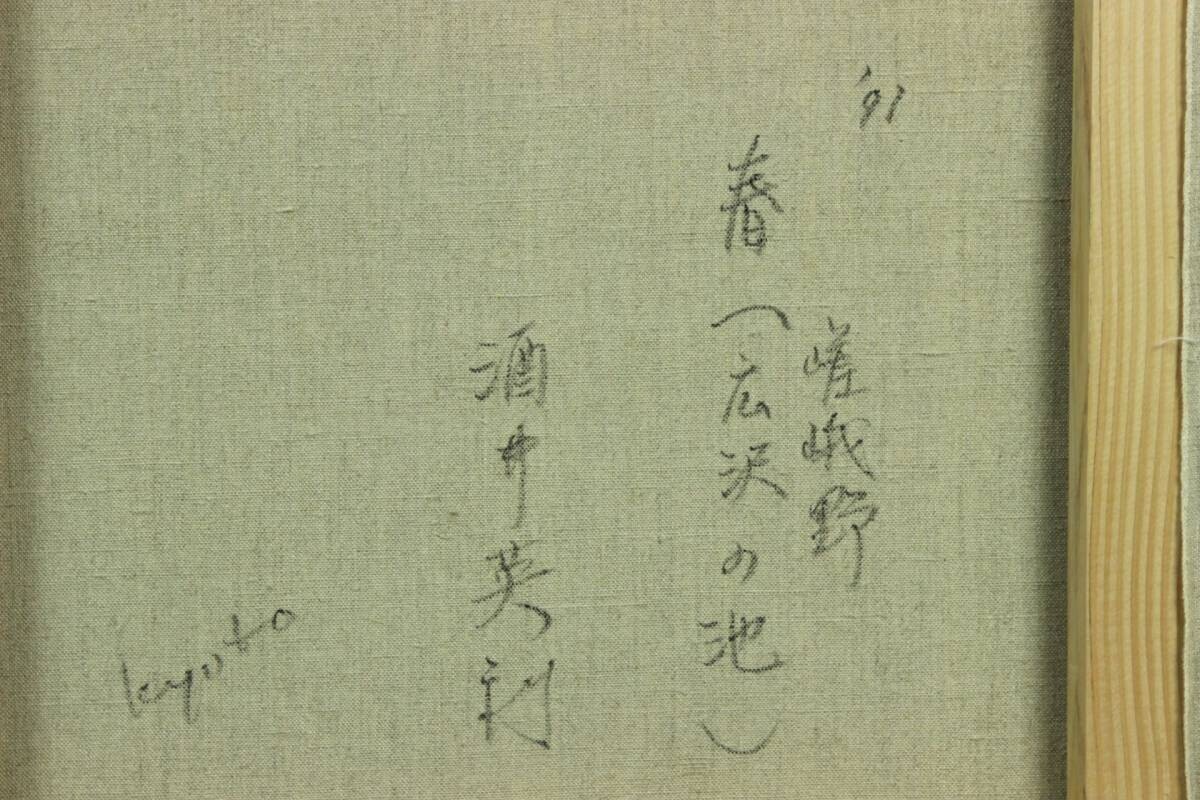 '91
嵯峨野
春（広沢の池）
酒井英利
kyoto